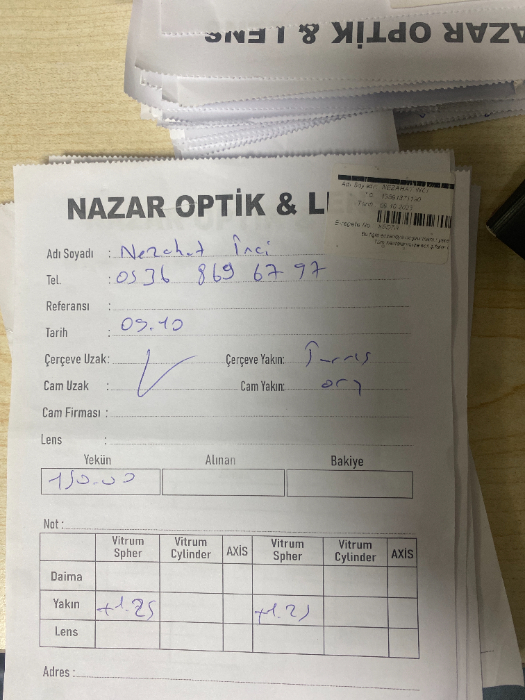 NAZAR OPTİK & LENS
NAZAR OPTİK & L
Adı Soyadı : Nezahat İnci
Tel. : 0536 869 67 97
Referansı :
Tarih : 09.10
Çerçeve Uzak: Çerçeve Yakın:
Cam Uzak : Cam Yakın: org
Cam Firması :
Lens :
Yekün Alınan Bakiye
150.00
Not :
Vitrum Spher Vitrum Cylinder AXİS Vitrum Spher Vitrum Cylinder AXİS
Daima
Yakın +1.25 +1.25
Lens
Adres :